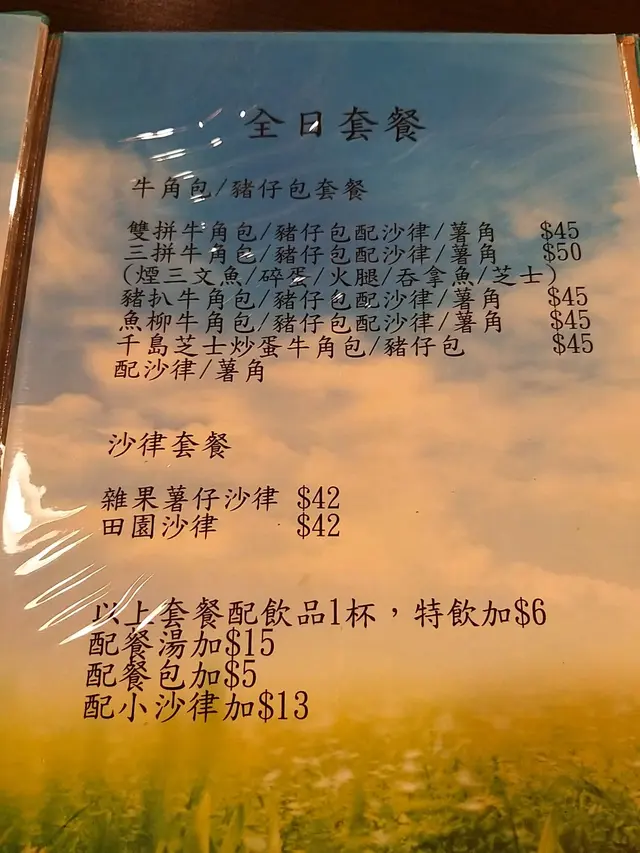 全日套餐
牛角包/豬仔包套餐
雙拼牛角包/豬仔包配沙律/薯角 $45
三拼牛角包/豬仔包配沙律/薯角 $50
(煙三文魚/碎蛋/火腿/吞拿魚/芝士)
豬扒牛角包/豬仔包配沙律/薯角 $45
魚柳牛角包/豬仔包配沙律/薯角 $45
千島芝士炒蛋牛角包/豬仔包 $45
配沙律/薯角
沙律套餐
雜果薯仔沙律 $42
田園沙律 $42
以上套餐配飲品1杯，特飲加$6
配餐湯加$15
配餐包加$5
配小沙律加$13